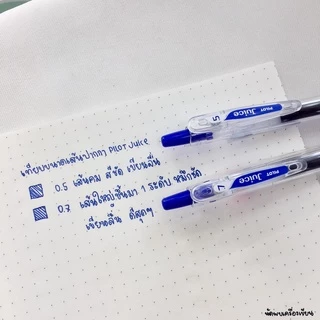 เทียบขนาดเส้นปากกา PILOT Juice
0.5 เส้นคม สีชัด เขียนลื่น
0.7 เส้นใหญ่ขึ้นมา 1 ระดับ หมึกชัด
เขียนลื่น ดีสุดๆ
PILOT Juice 5
PILOT Juice 7